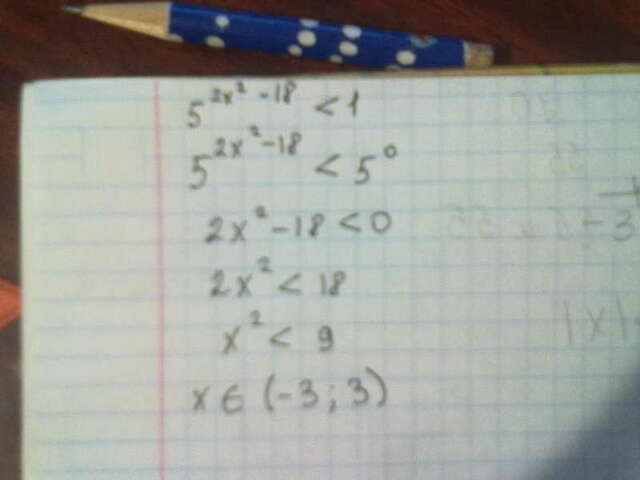 5^{2x²-18} < 1
5^{2x²-18} < 5⁰
2x²-18 < 0
2x² < 18
x² < 9
x ∈ (-3; 3)
-3
|x|